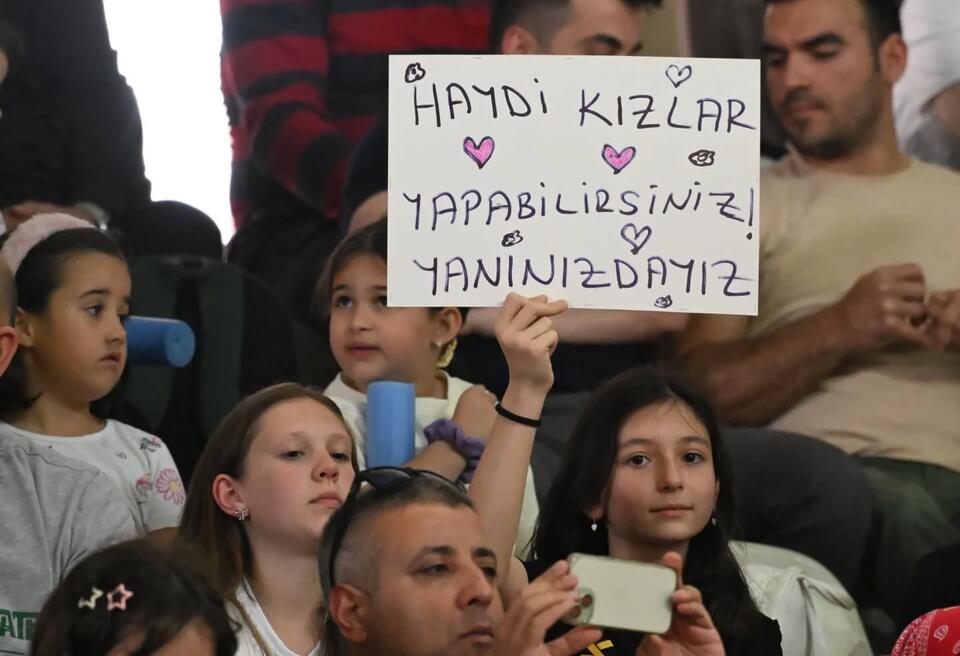 HAYDi KIZLAR
YAPABiLiRSiNiZ!
YANINIZDAYIZ